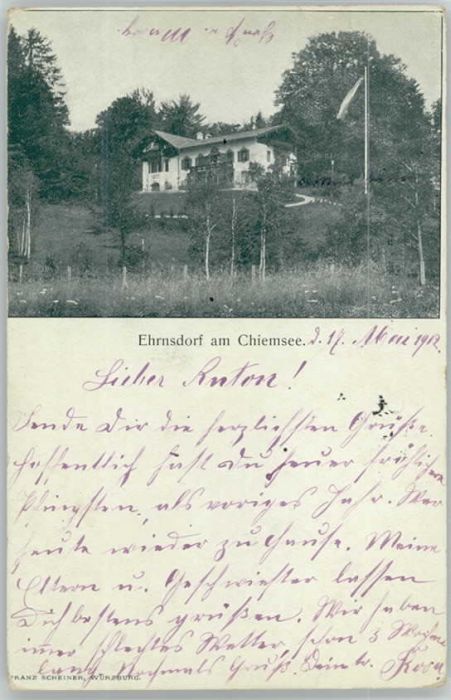 Ehrnsdorf am Chiemsee. d. 17. Mai 1902.
Lieber Anton!
Sende Dir die herzlichsten Grüße.
Hoffentlich hast Du heuer fröhlichere
Pfingsten, als voriges Jahr. War
heute wieder zu Hause. Meine
Eltern u. Geschwister lassen
Dich bestens grüßen. Wir haben
imer schlechtes Wetter, schon 3 Wochen
lang. Nochmals Gruß. Dein tr.
FRANZ SCHEINER, WÜRZBURG.